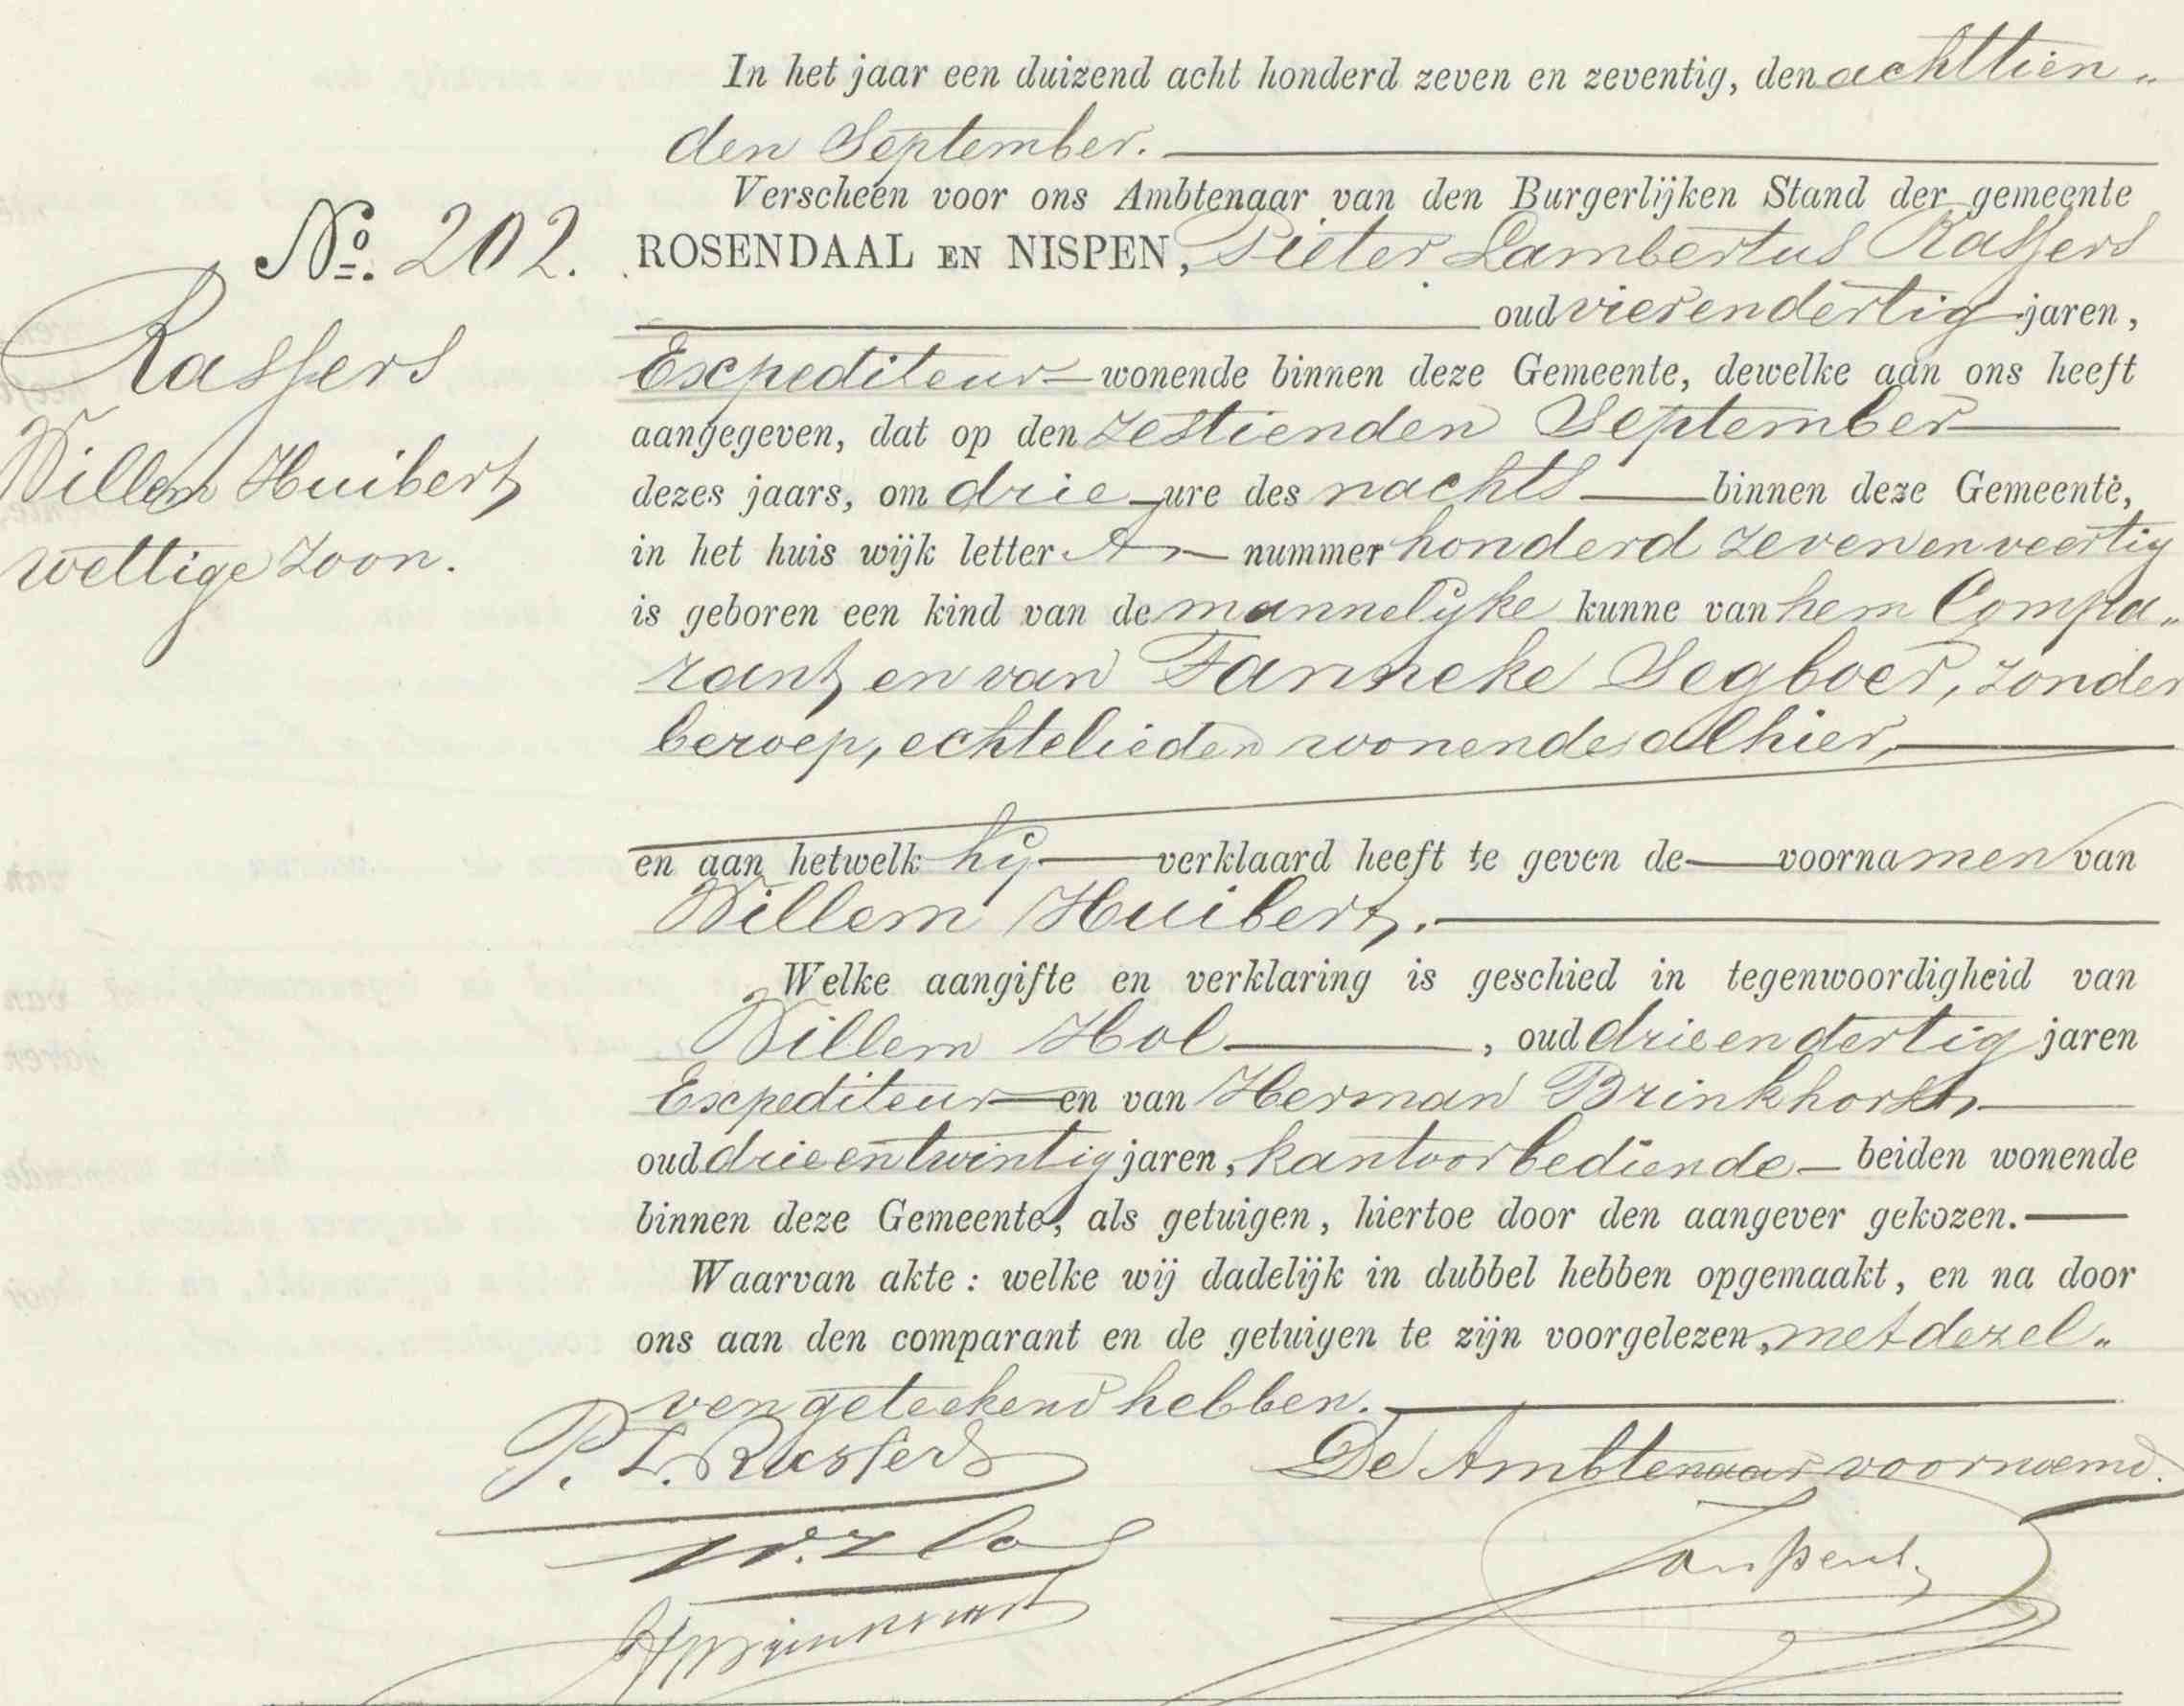 In het jaar een duizend acht honderd zeven en zeventig, den achttien„
den September.
Verscheen voor ons Ambtenaar van den Burgerlijken Stand der gemeente
No. 202.
ROSENDAAL EN NISPEN, Pieter Lambertus Rassers
oud vierendertig jaren,
Rassers
Expediteur wonende binnen deze Gemeente, dewelke aan ons heeft
aangegeven, dat op den zestienden September
Willem Huibert
dezes jaars, om drie ure des nachts binnen deze Gemeente,
wettige zoon.
in het huis wijk letter A nummer honderd zevenenveertig
is geboren een kind van de mannelijke kunne van hem Compa„
rant, en van Janneke Segboer, zonder
beroep, echtelieden wonende alhier,
en aan hetwelk hij verklaard heeft te geven de voornamen van
Willem Huibert.
Welke aangifte en verklaring is geschied in tegenwoordigheid van
Willem Hol, oud drieendertig jaren
Expediteur en van Herman Brinkhorst,
oud drieentwintig jaren, kantoorbediende beiden wonende
binnen deze Gemeente, als getuigen, hiertoe door den aangever gekozen.
Waarvan akte: welke wij dadelijk in dubbel hebben opgemaakt, en na door
ons aan den comparant en de getuigen te zijn voorgelezen, met dezel„
ven geteekend hebben.
P. L. Rassers
De Ambtenaar voornoemd.
W. Hol
HBrinkhorst